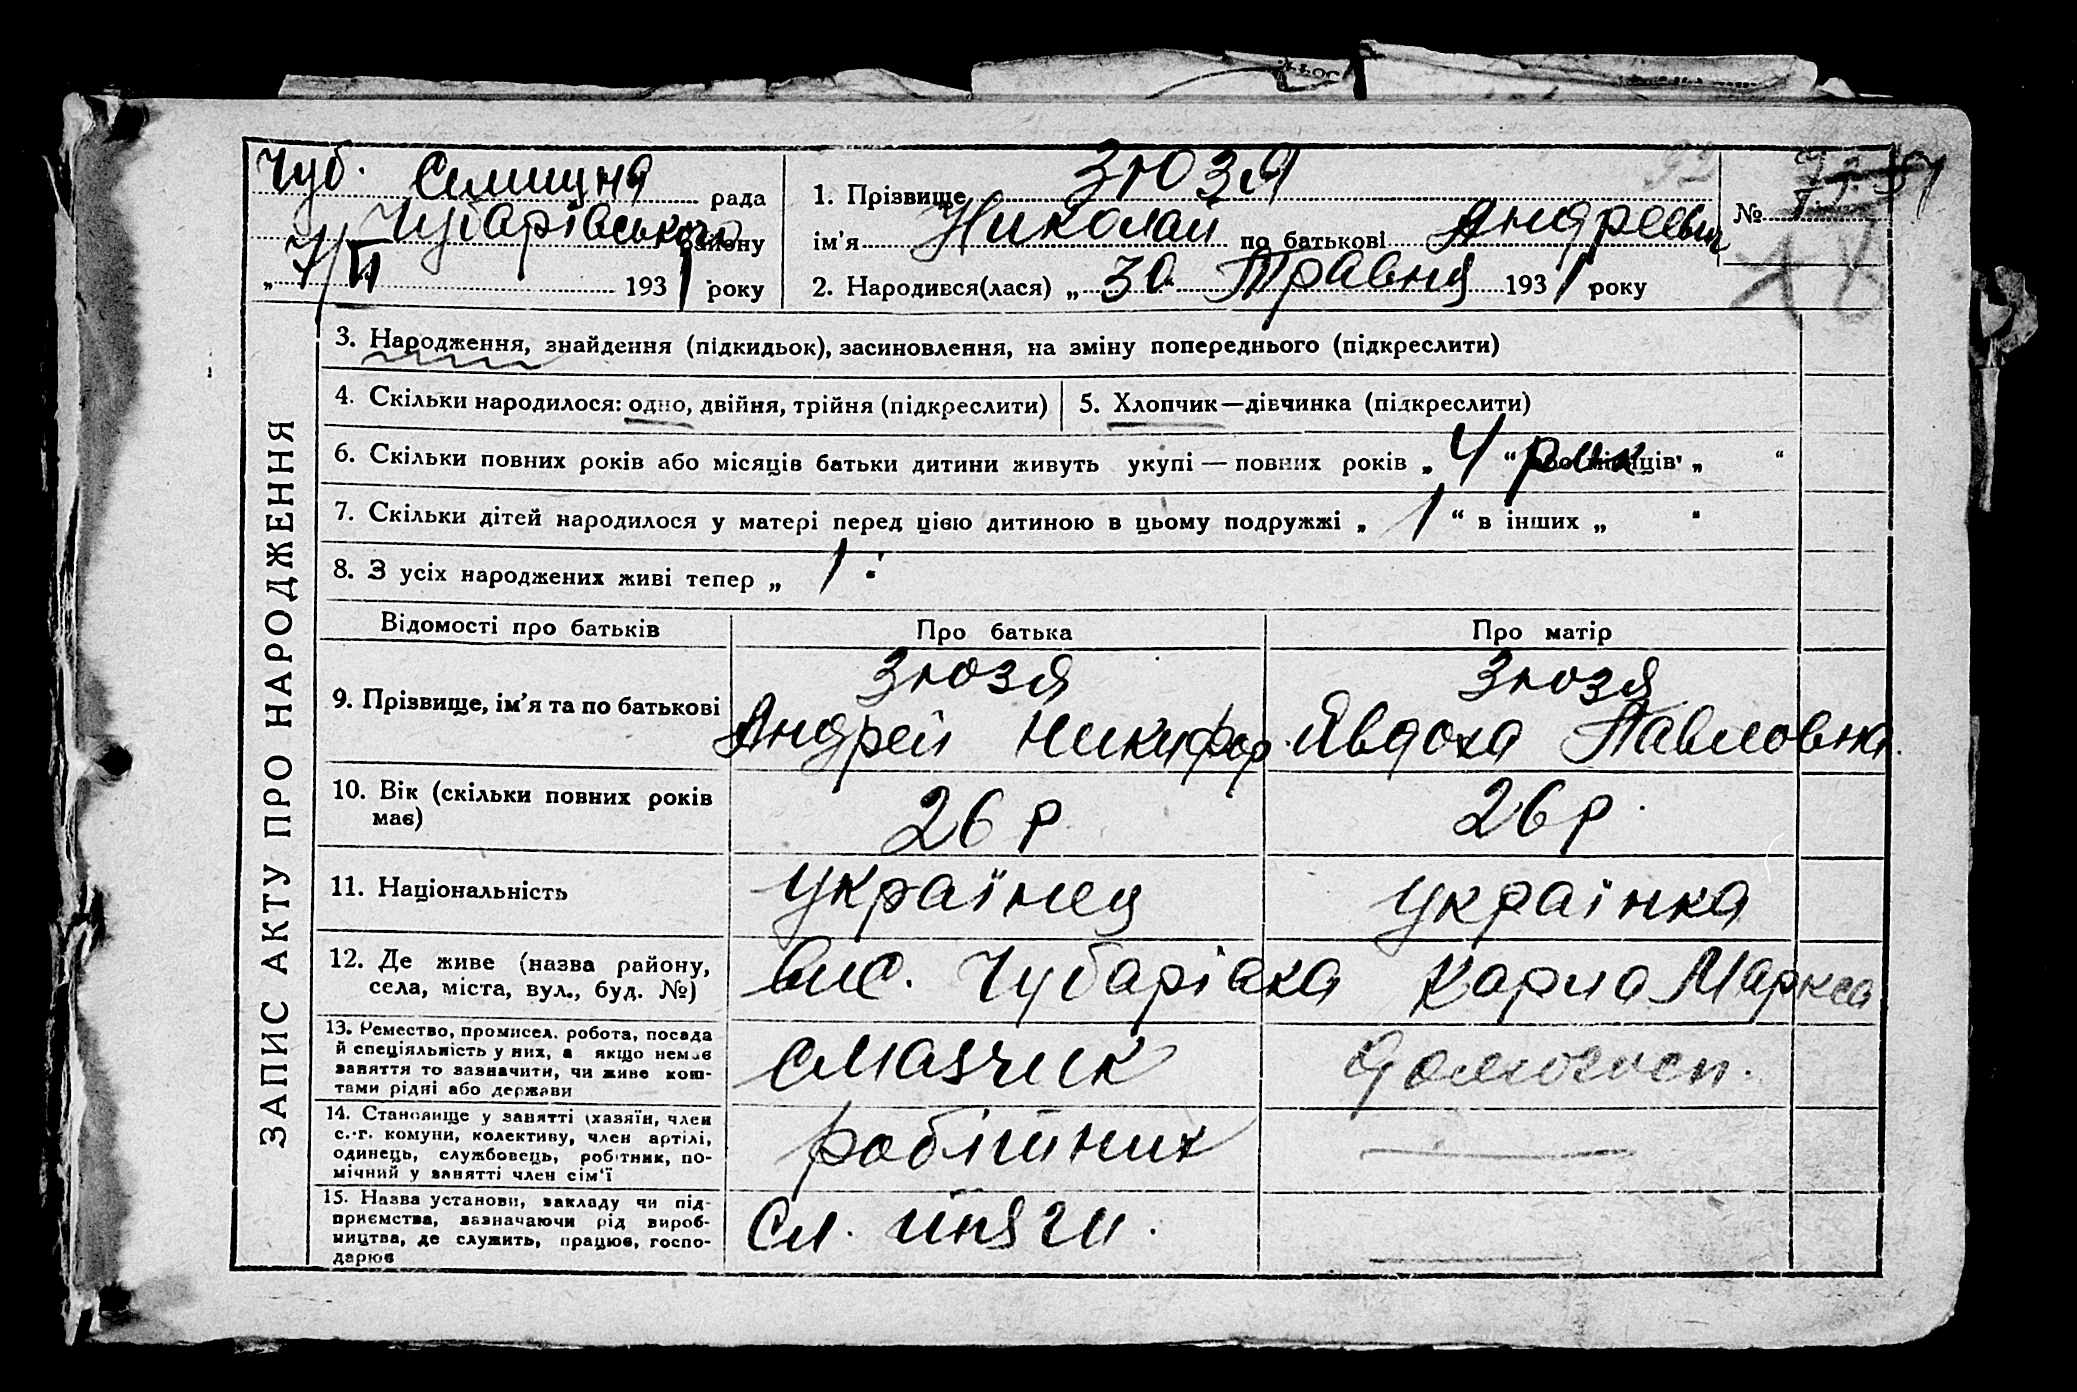 Чуб. Селищна рада
Чубарівського району
„ 7/VI 1931 року
1. Прізвище Зюзя
ім'я Николай по батькові Андреевич
2. Народився(лася) „ 30 Травня 1931 року
№
18
ЗАПИС АКТУ ПРО НАРОДЖЕННЯ
3. Народження, знайдення (підкидьок), засиновлення, на зміну попереднього (підкреслити)
4. Скільки народилося: одно, двійня, трійня (підкреслити)
5. Хлопчик—дівчинка (підкреслити)
6. Скільки повних років або місяців батьки дитини живуть укупі — повних років „ 4 рок “ або місяців „ “
7. Скільки дітей народилося у матері перед цією дитиною в цьому подружжі „ 1 “ в інших „ “
8. З усіх народжених живі тепер „ 1 “
Відомості про батьків
Про батька
Про матір
9. Прізвище, ім'я та по батькові
Зюзя
Андрей Никифор
Зюзя
Явдоха Павловна
10. Вік (скільки повних років
має)
26 р
26 р.
11. Національність
Українец
Українка
12. Де живе (назва району,
села, міста, вул., буд. №)
вис. Чубарівка Карла Маркса
13. Ремество, промисел, робота, посада
й спеціяльність у них, а якщо немає
заняття то зазначити, чи живе кош-
тами рідні або держави
смазчик
домогосп.
14. Становище у занятті (хазяїн, член
с.-г. комуни, колективу, член артілі,
одинець, службовець, робітник, по-
мічний у занятті член сім'ї
робітник
15. Назва установи, закладу чи під-
приємства, зазначаючи рід вироб-
ництва, де служить, працює, госпо-
дарює
Сл. тяги.